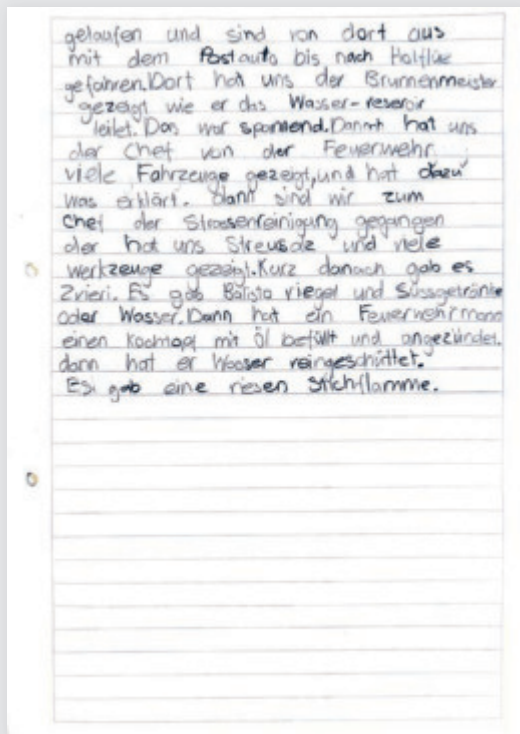 gelaufen und sind von dort aus
mit dem Postauto bis nach Halflüe
gefahren. Dort hat uns der Brunnenmeister
gezeigt wie er das Wasser-reservoir
leitet. Das war spannend. Dann hat uns
der Chef von der Feuerwehr
viele Fahrzeuge gezeigt, und hat dazu
was erklärt. dann sind wir zum
Chef der Strassenreinigung gegangen
der hat uns Streusalz und viele
werkzeuge gezeigt. Kurz danach gab es
Zvieri. Es gab Balisto riegel und Süssgetränke
oder Wasser. Dann hat ein Feuerwehrmann
einen Kochtopf mit Öl befüllt und angezündet.
dann hat er Wasser reingeschüttet.
Es gab eine riesen Stichflamme.